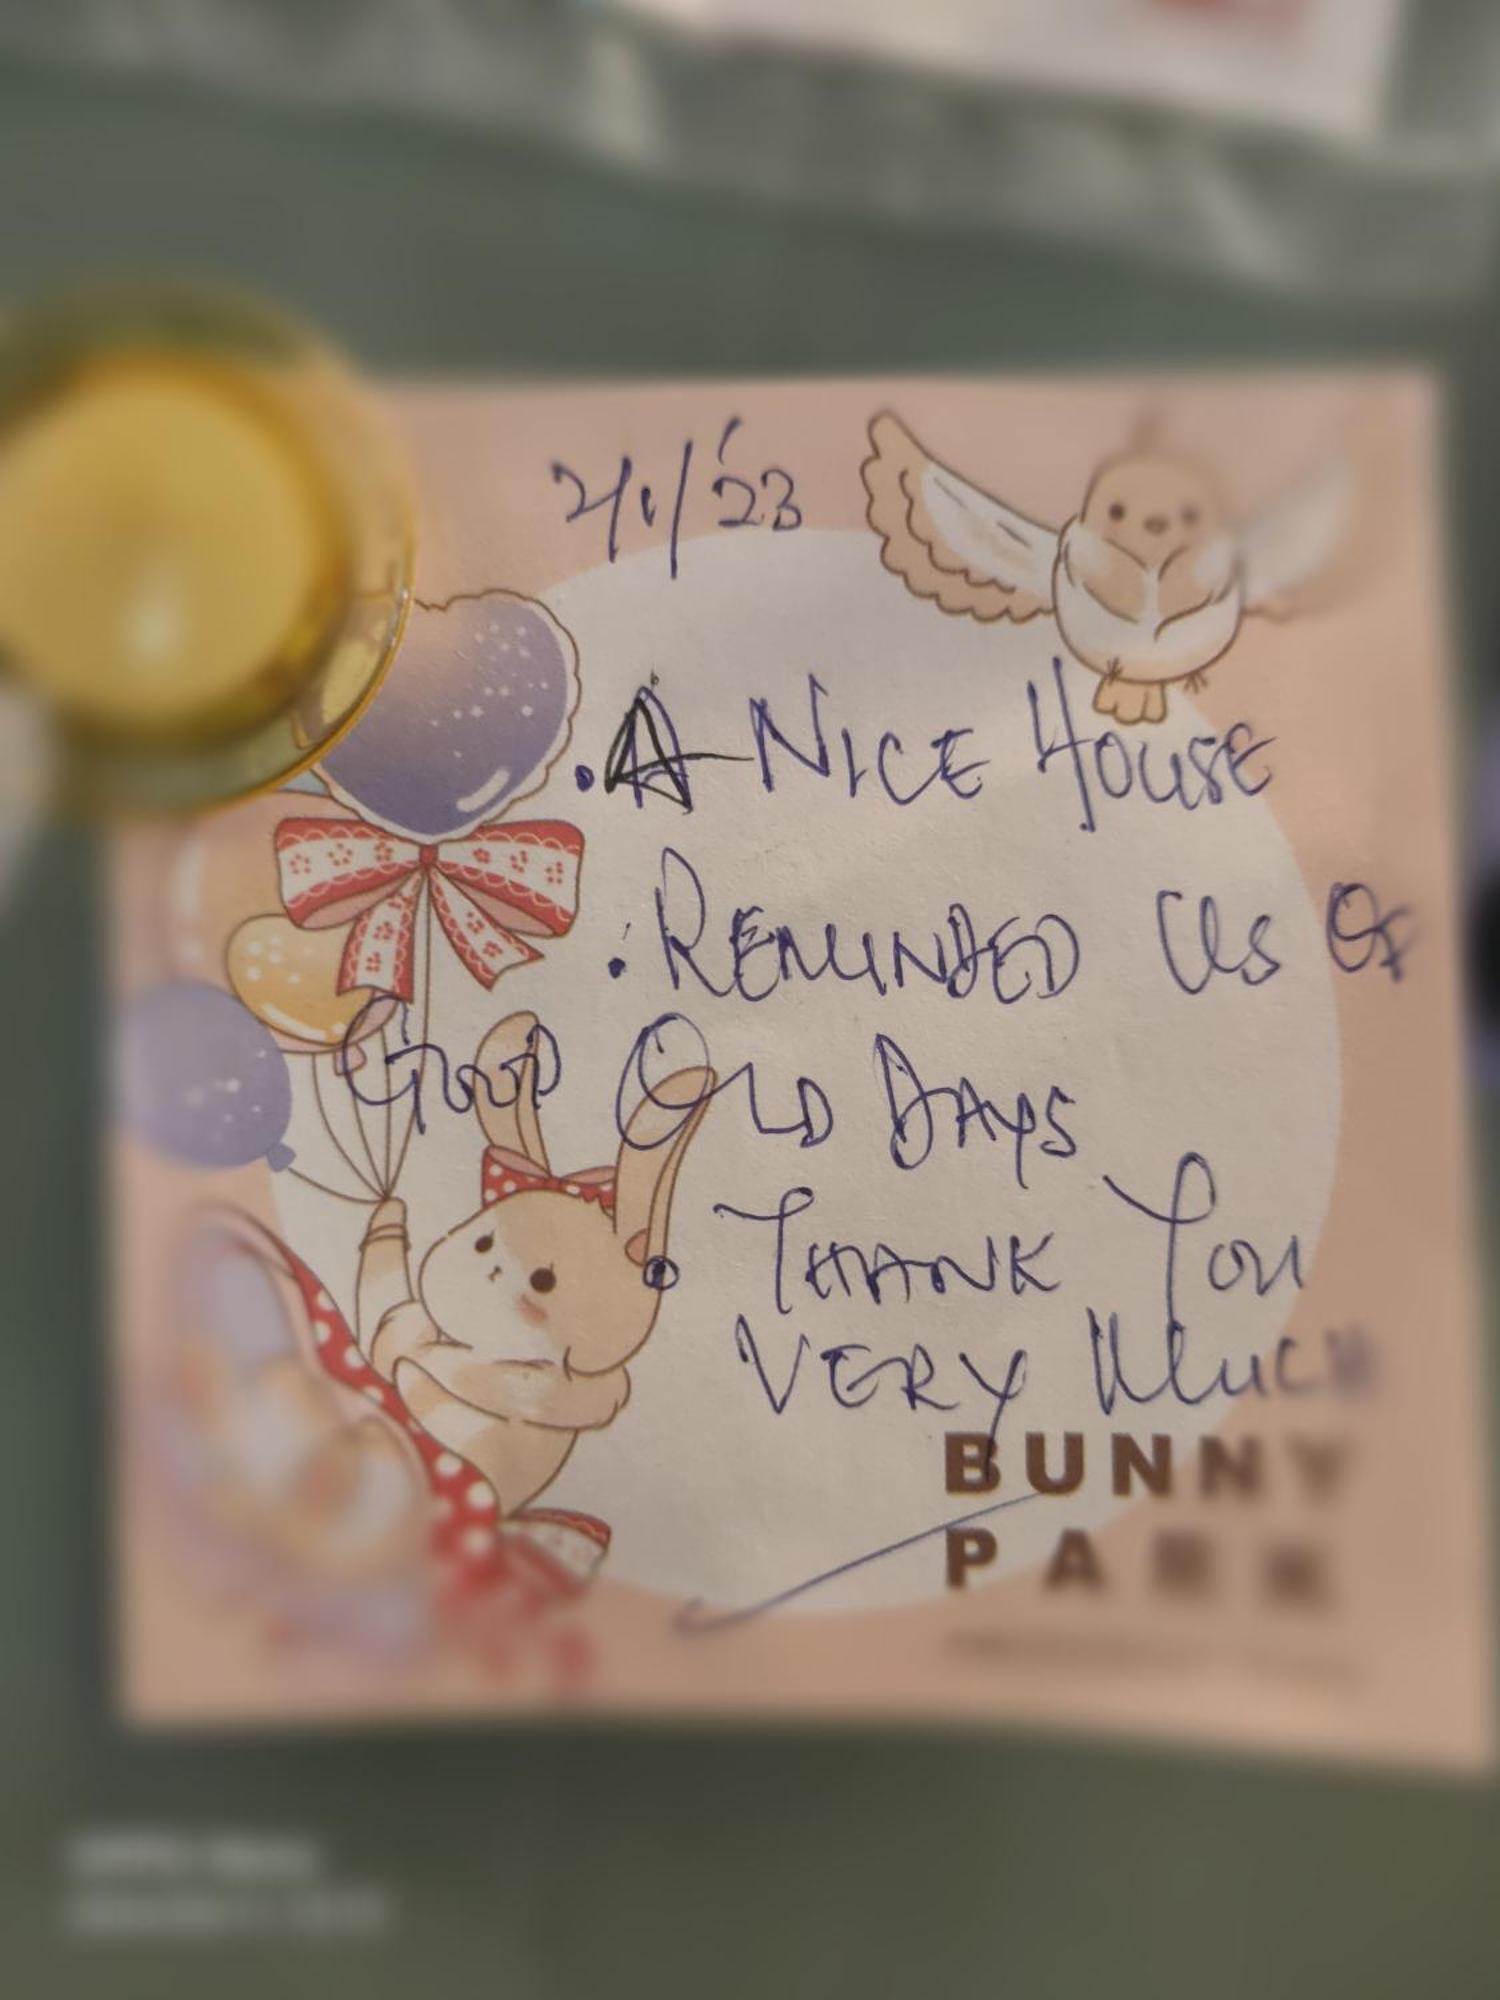 2/1/'23
. A NICE HOUSE
. REMINDED US OF
GOOD OLD DAYS
• THANK YOU
VERY MUCH
BUNNY
PARK